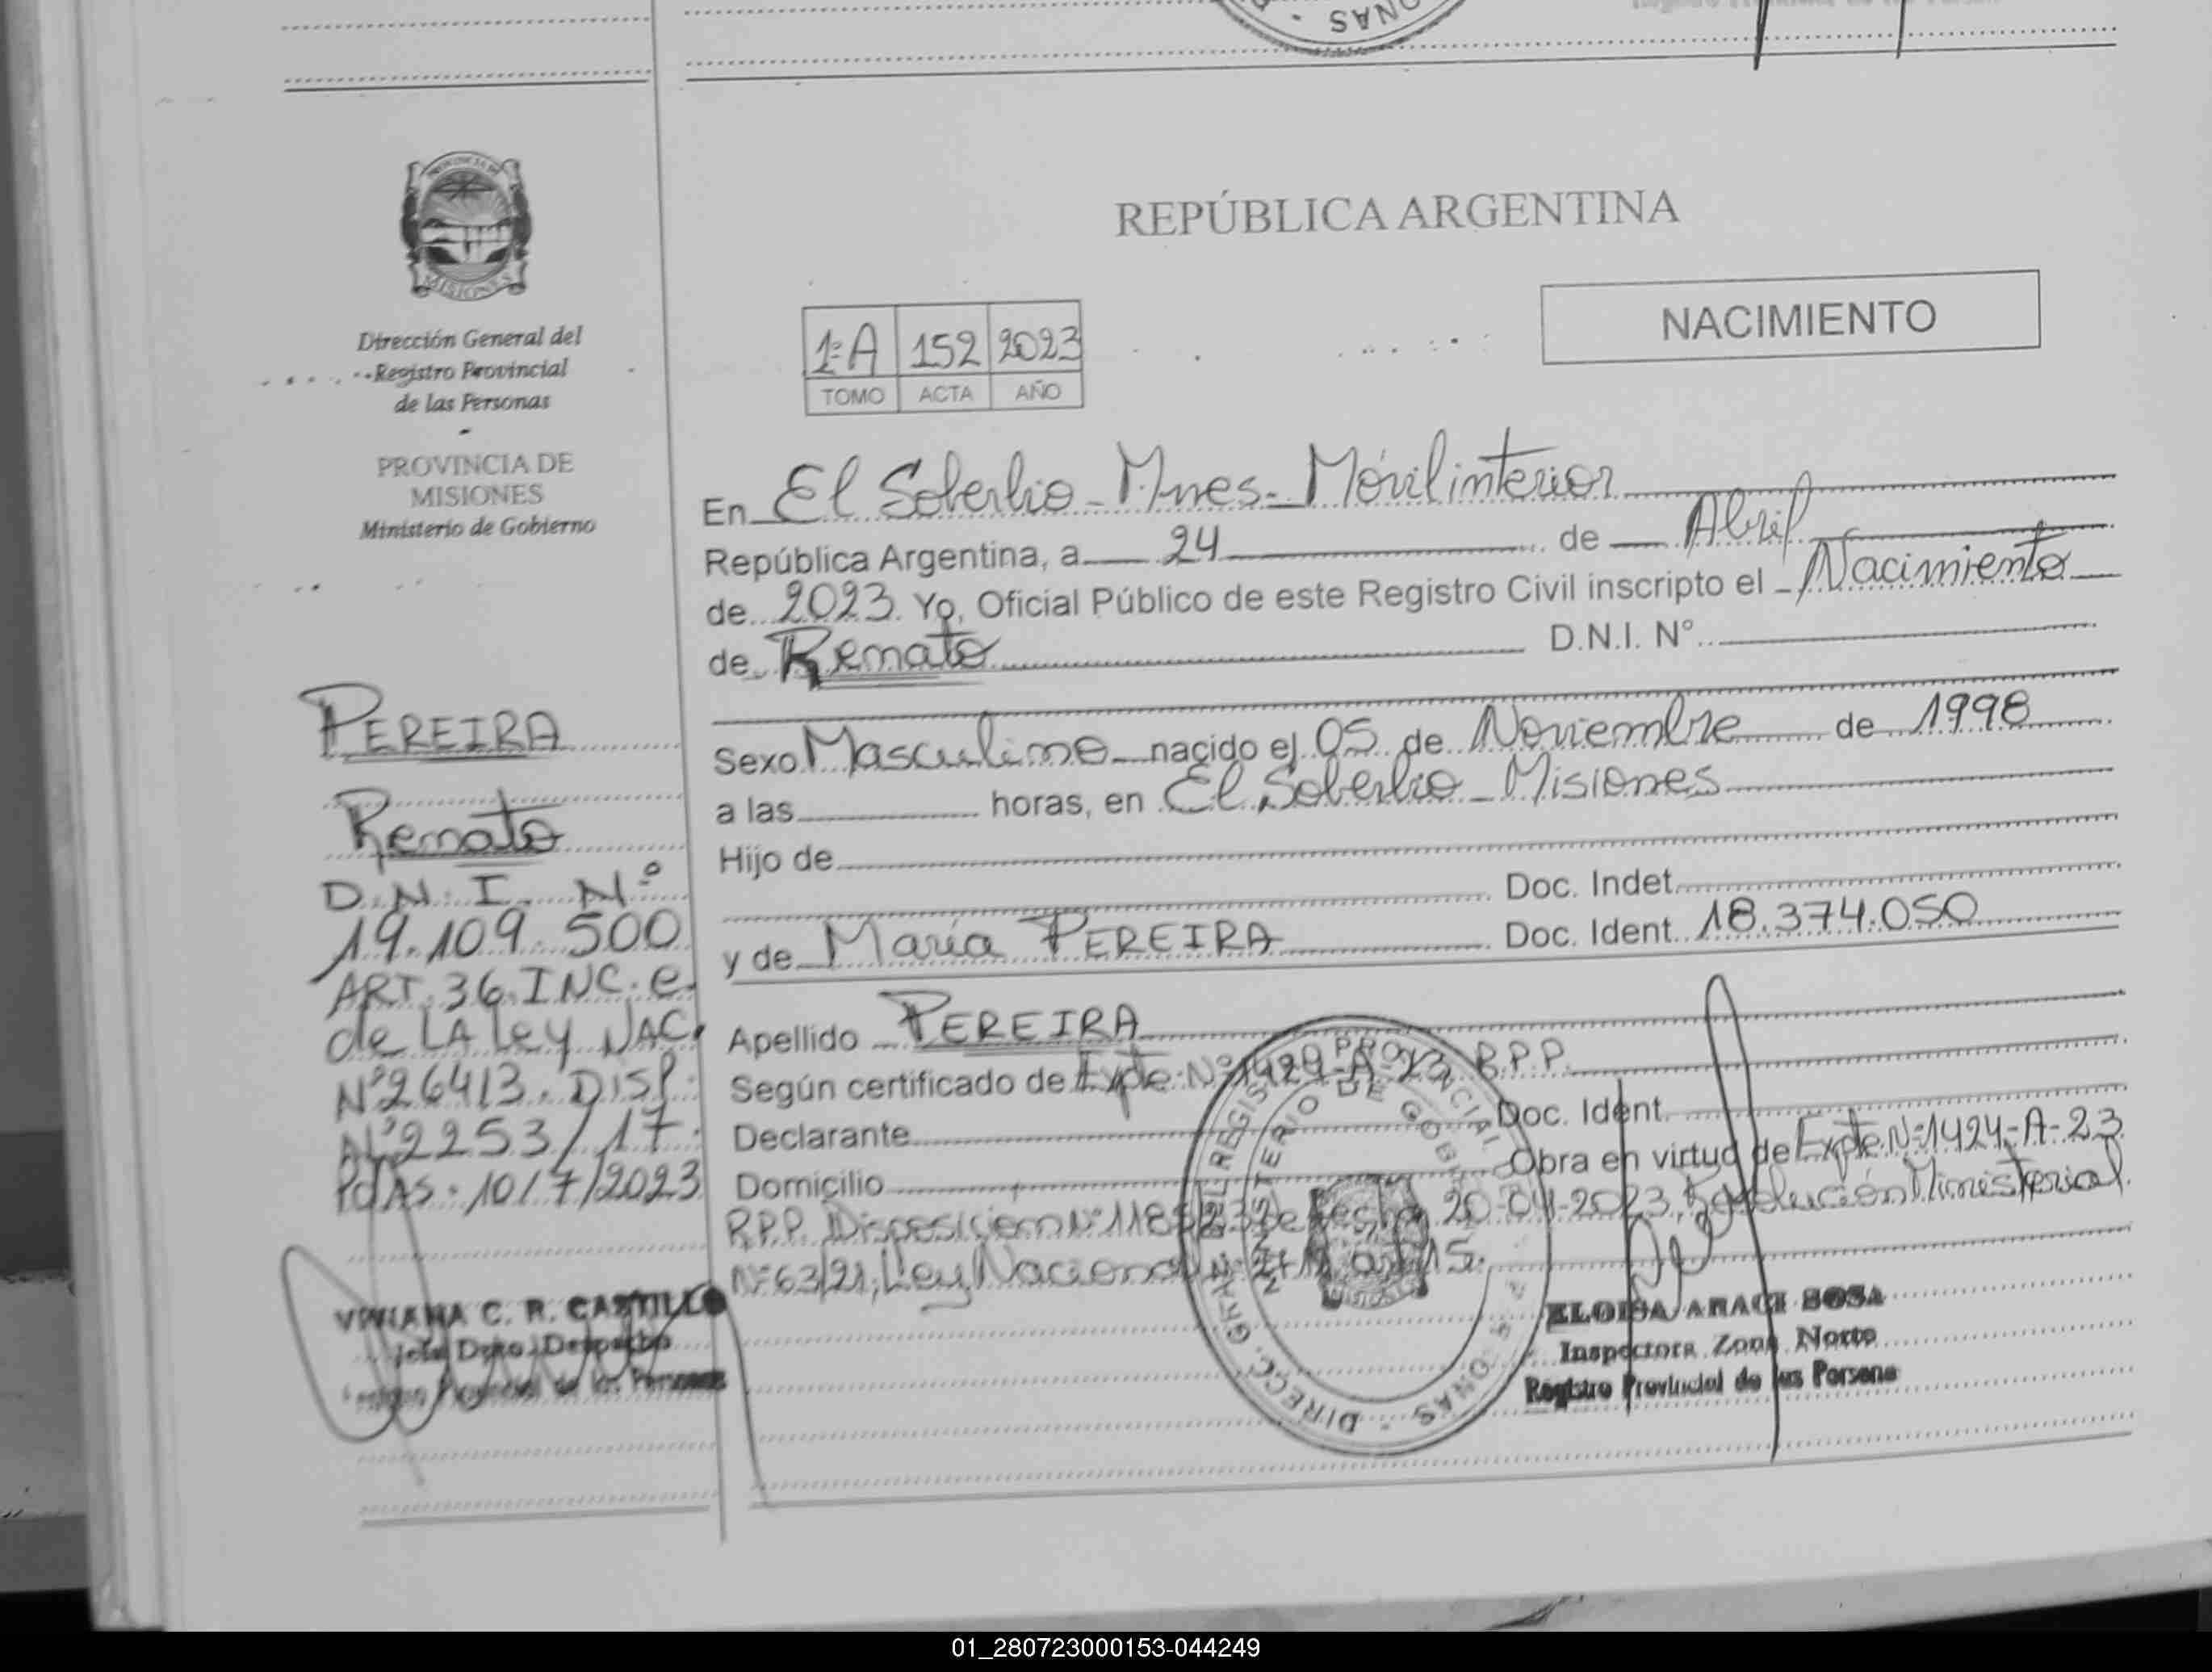 SANO
PROVINCIA DE
MISIONES
Dirección General del
Registro Provincial
de las Personas
PROVINCIA DE
MISIONES
Ministerio de Gobierno
PEREIRA
Renato
D.N.I. Nº
19.109.500
ART. 36 INC. e
de LA Ley NAC.
Nº26413. DISP.
Nº2253/17.
PdAS. 10/7/2023
VIVIANA C. R. CASTILLO
Jefa Dpto. Despacho
Provincial de las Personas
REPÚBLICA ARGENTINA
NACIMIENTO
1ºA 152 2023
TOMO ACTA AÑO
En El Soberbio - Mnes - Móvil interior
República Argentina, a 24 de Abril
de 2023. Yo, Oficial Público de este Registro Civil inscripto el Nacimiento
de Renato D.N.I. N°
Sexo Masculino nacido el 05 de Noviembre de 1998
a las horas, en El Soberbio - Misiones
Hijo de
Doc. Indet.
y de María PEREIRA Doc. Ident. 18.374.050
Apellido PEREIRA
Según certificado de Expte. Nº 1424-A-23 R.P.P.
Declarante Doc. Ident.
Domicilio Obra en virtud de Expte. Nº 1424-A-23
R.P.P. Disposición Nº 1185/23 de fecha 20-04-2023, Resolución Ministerial
Nº 63/21, Ley Nacional art 15.
MINISTERIO DE
ELOISA ARACI SOSA
Inspectora Zona Norte
Registro Provincial de las Persona
01_280723000153-044249